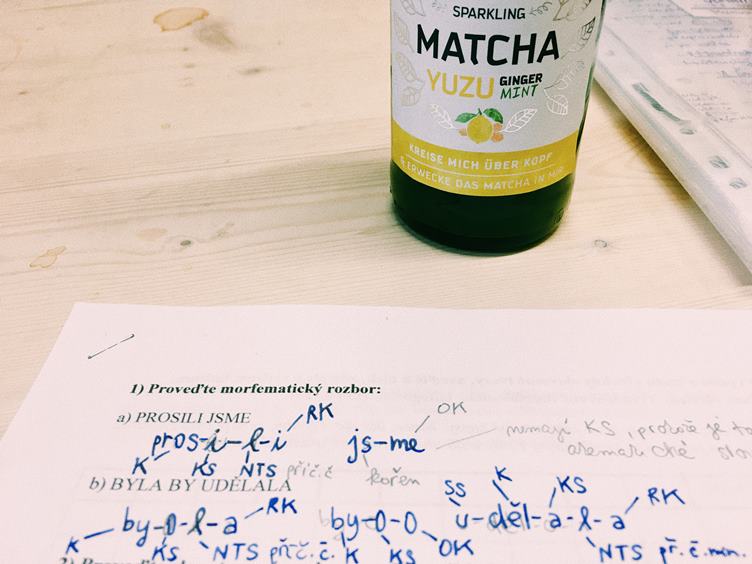 SPARKLING
MATCHA
YUZU GINGER MINT
KREISE MICH ÜBER KOPF
& ERWECKE DAS MATCHA IN MIR
1) Proveďte morfematický rozbor:
a) PROSILI JSME
RK
OK
pros-i-l-i js-me
nemají KS, protože je to
atematické slov
K KS NTS příč.č kořen
b) BYLA BY UDĚLALA
SS K KS RK
RK
by-0-l-a by-0-0 u-děl-a-l-a
K KS NTS př.č.č. K KS OK NTS př.č.min.